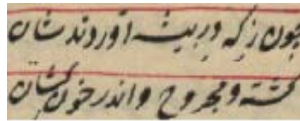 چون ز که در بیشه آوردندشان
کشته و مجروح و اندر خون کشان